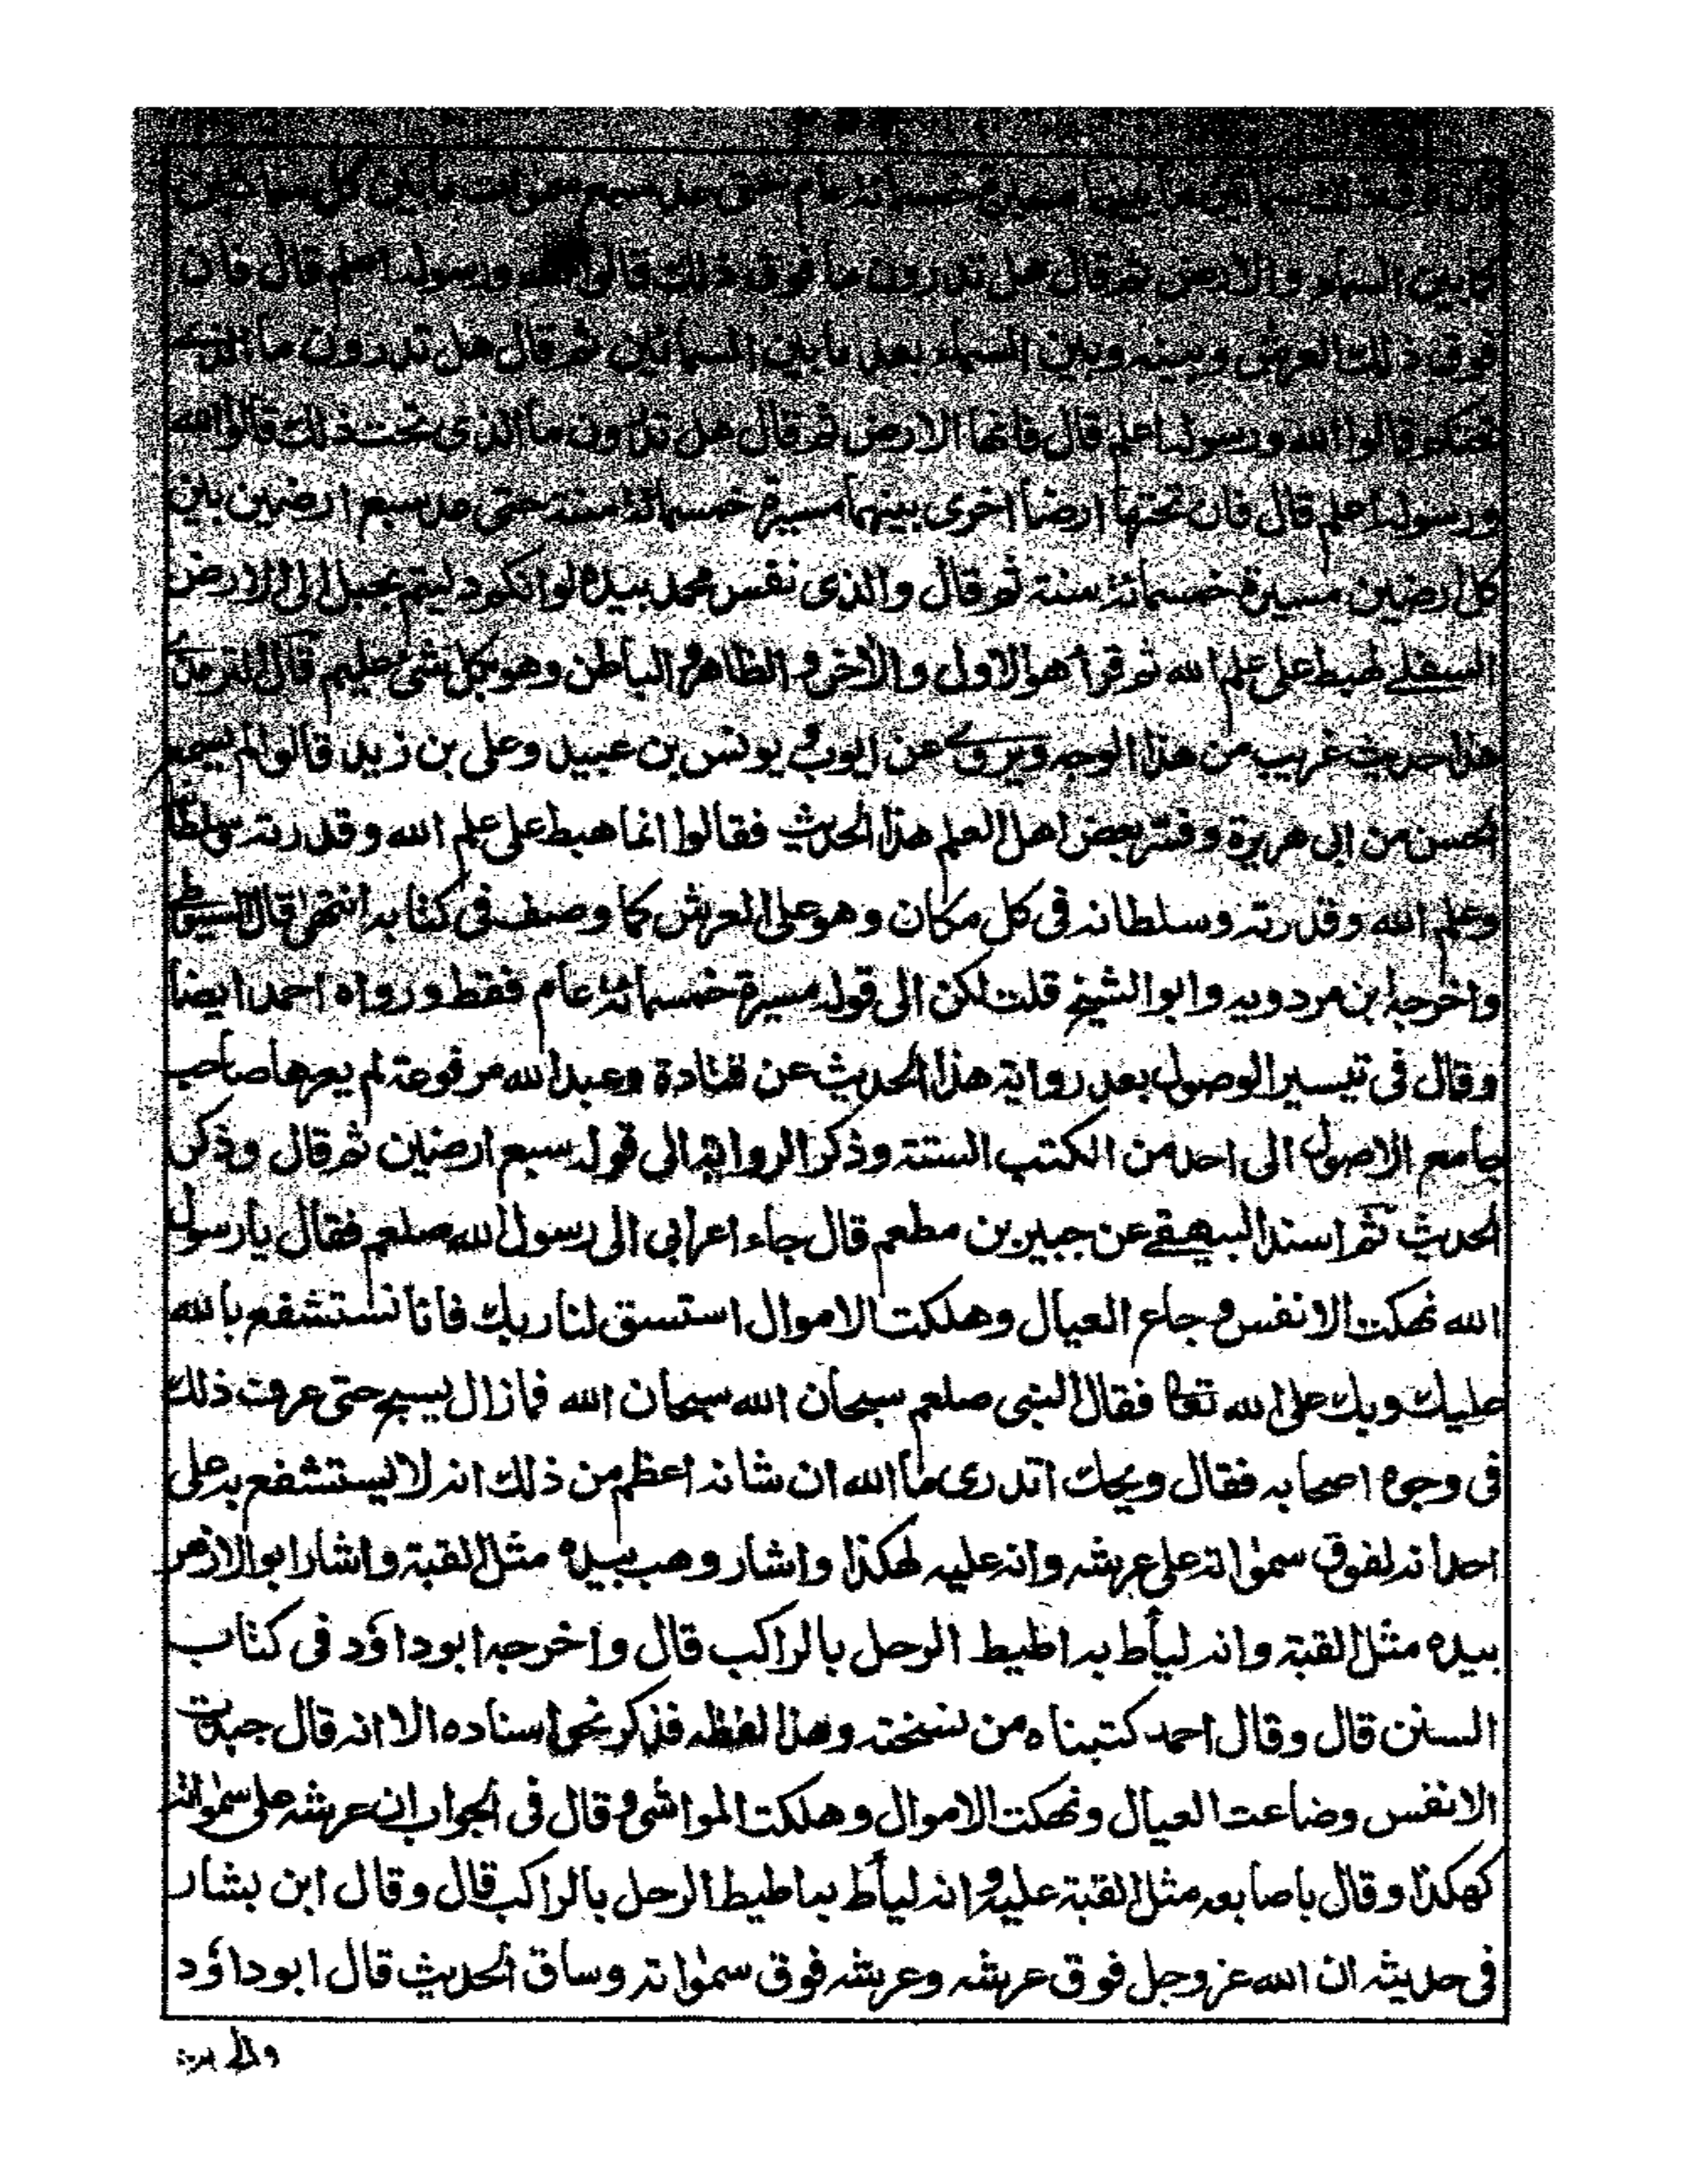 فوق ذلك سمائين ما بينهما مسيرة خمسمائة عام حتى عد سبع سموات ما بين كل سمائين
كما بين السماء والارض ثم قال هل تدرون ما فوق ذلك قالوا الله ورسوله اعلم قال فان
فوق ذلك العرش وبينه وبين السماء بعد ما بين السمائين ثم قال هل تدرون ما الذي
تحتكم قالوا الله ورسوله اعلم قال فانها الارض ثم قال هل تدرون ما الذى تحت ذلك قالوا الله
ورسوله اعلم قال فان تحتها ارضا اخرى بينهما مسيرة خمسمائة سنة حتى عد سبع ارضين بين
كل ارضين مسيرة خمسمائة سنة ثم قال والذى نفس محمد بيده لو انكم دليتم بحبل الى الارض
السفلے لهبط على علم الله ثم قرأ هو الاول والاخر والظاهر والباطن وهو بكل شئ عليم قال الترمذے
هذا حديث غريب من هذا الوجه ويروے عن ايوب ويونس بن عبيد وعلى بن زيد قالوا لم يسمع
الحسن من ابى هريرة وفسر بعض اهل العلم هذا الحديث فقالوا انما هبط على علم الله وقدرته وسلطانه
وعلم الله وقدرته وسلطانه فى كل مكان وهو على العرش كما وصف فى كتابه انتهى قال السيوطے
واخرجه ابن مردويه وابو الشيخ قلت لكن الى قوله مسيرة خمسمائة عام فقط ورواه احمد ايضا
وقال فى تيسير الوصول بعد رواية هذا الحديث عن قتادة وعبد الله مرفوعة لم يعزها صاحب
جامع الاصول الى احد من الكتب الستة وذكر الرواية الى قوله سبع ارضين ثم قال وذكر
الحديث ثم اسند البيهقے عن جبير بن مطعم قال جاء اعرابي الى رسول الله صلعم فقال يا رسول
الله نهكت الانفس وجاع العيال وهلكت الاموال استسق لنا ربك فانا نستشفع بالله
عليك وبك على الله تعا فقال النبى صلعم سبحان الله سبحان الله فما زال يسبح حتى عرف ذلك
فى وجوه اصحابه فقال ويحك اتدرى ما الله ان شانه اعظم من ذلك انه لا يستشفع به على
احد انه لفوق سمواته على عرشه وانه عليه لهكذا واشار وهب بيده مثل القبة واشار ابو الازهر
بيده مثل القبة وانه ليأط به اطيط الرحل بالراكب قال واخرجه ابو داؤد فى كتاب
السنن قال وقال احمد كتبناه من نسخته وهذا لفظه فذكر نحو اسناده الا انه قال جهدت
الانفس وضاعت العيال ونهكت الاموال وهلكت المواشى وقال فى الجواب ان عرشه على سمواته
كهكذا وقال باصابعه مثل القبة عليه وانه ليأط به اطيط الرحل بالراكب قال وقال ابن بشار
فى حديثه ان الله عز وجل فوق عرشه وعرشه فوق سمواته وساق الحديث قال ابو داؤد